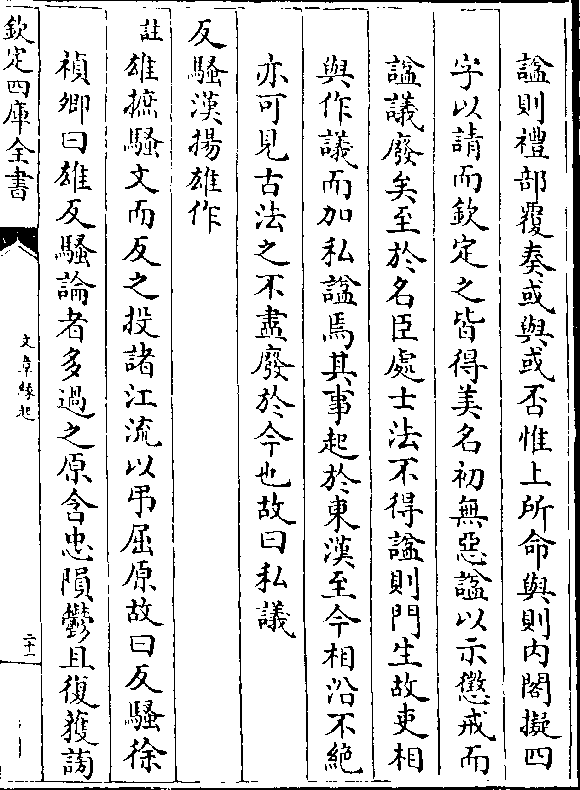 諡則禮部覆奏或與或否惟上所命與則内閣擬四
字以請而欽定之皆得美名初無惡諡以示懲戒而
諡議廢矣至於名臣處士法不得諡則門生故吏相
與作議而加私諡焉其事起於東漢至今相沿不絶
亦可見古法之不盡廢於今也故曰私議
反騷漢揚雄作
註雄摭騷文而反之投諸江流以弔屈原故曰反騷徐
禎卿曰雄反騷論者多過之原含忠隕鬱且復獲謗
欽定四庫全書
文章緣起
二十一